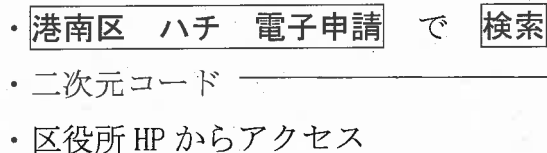 ・港南区　ハチ　電子申請　で　検索
・二次元コード
・区役所 HP からアクセス